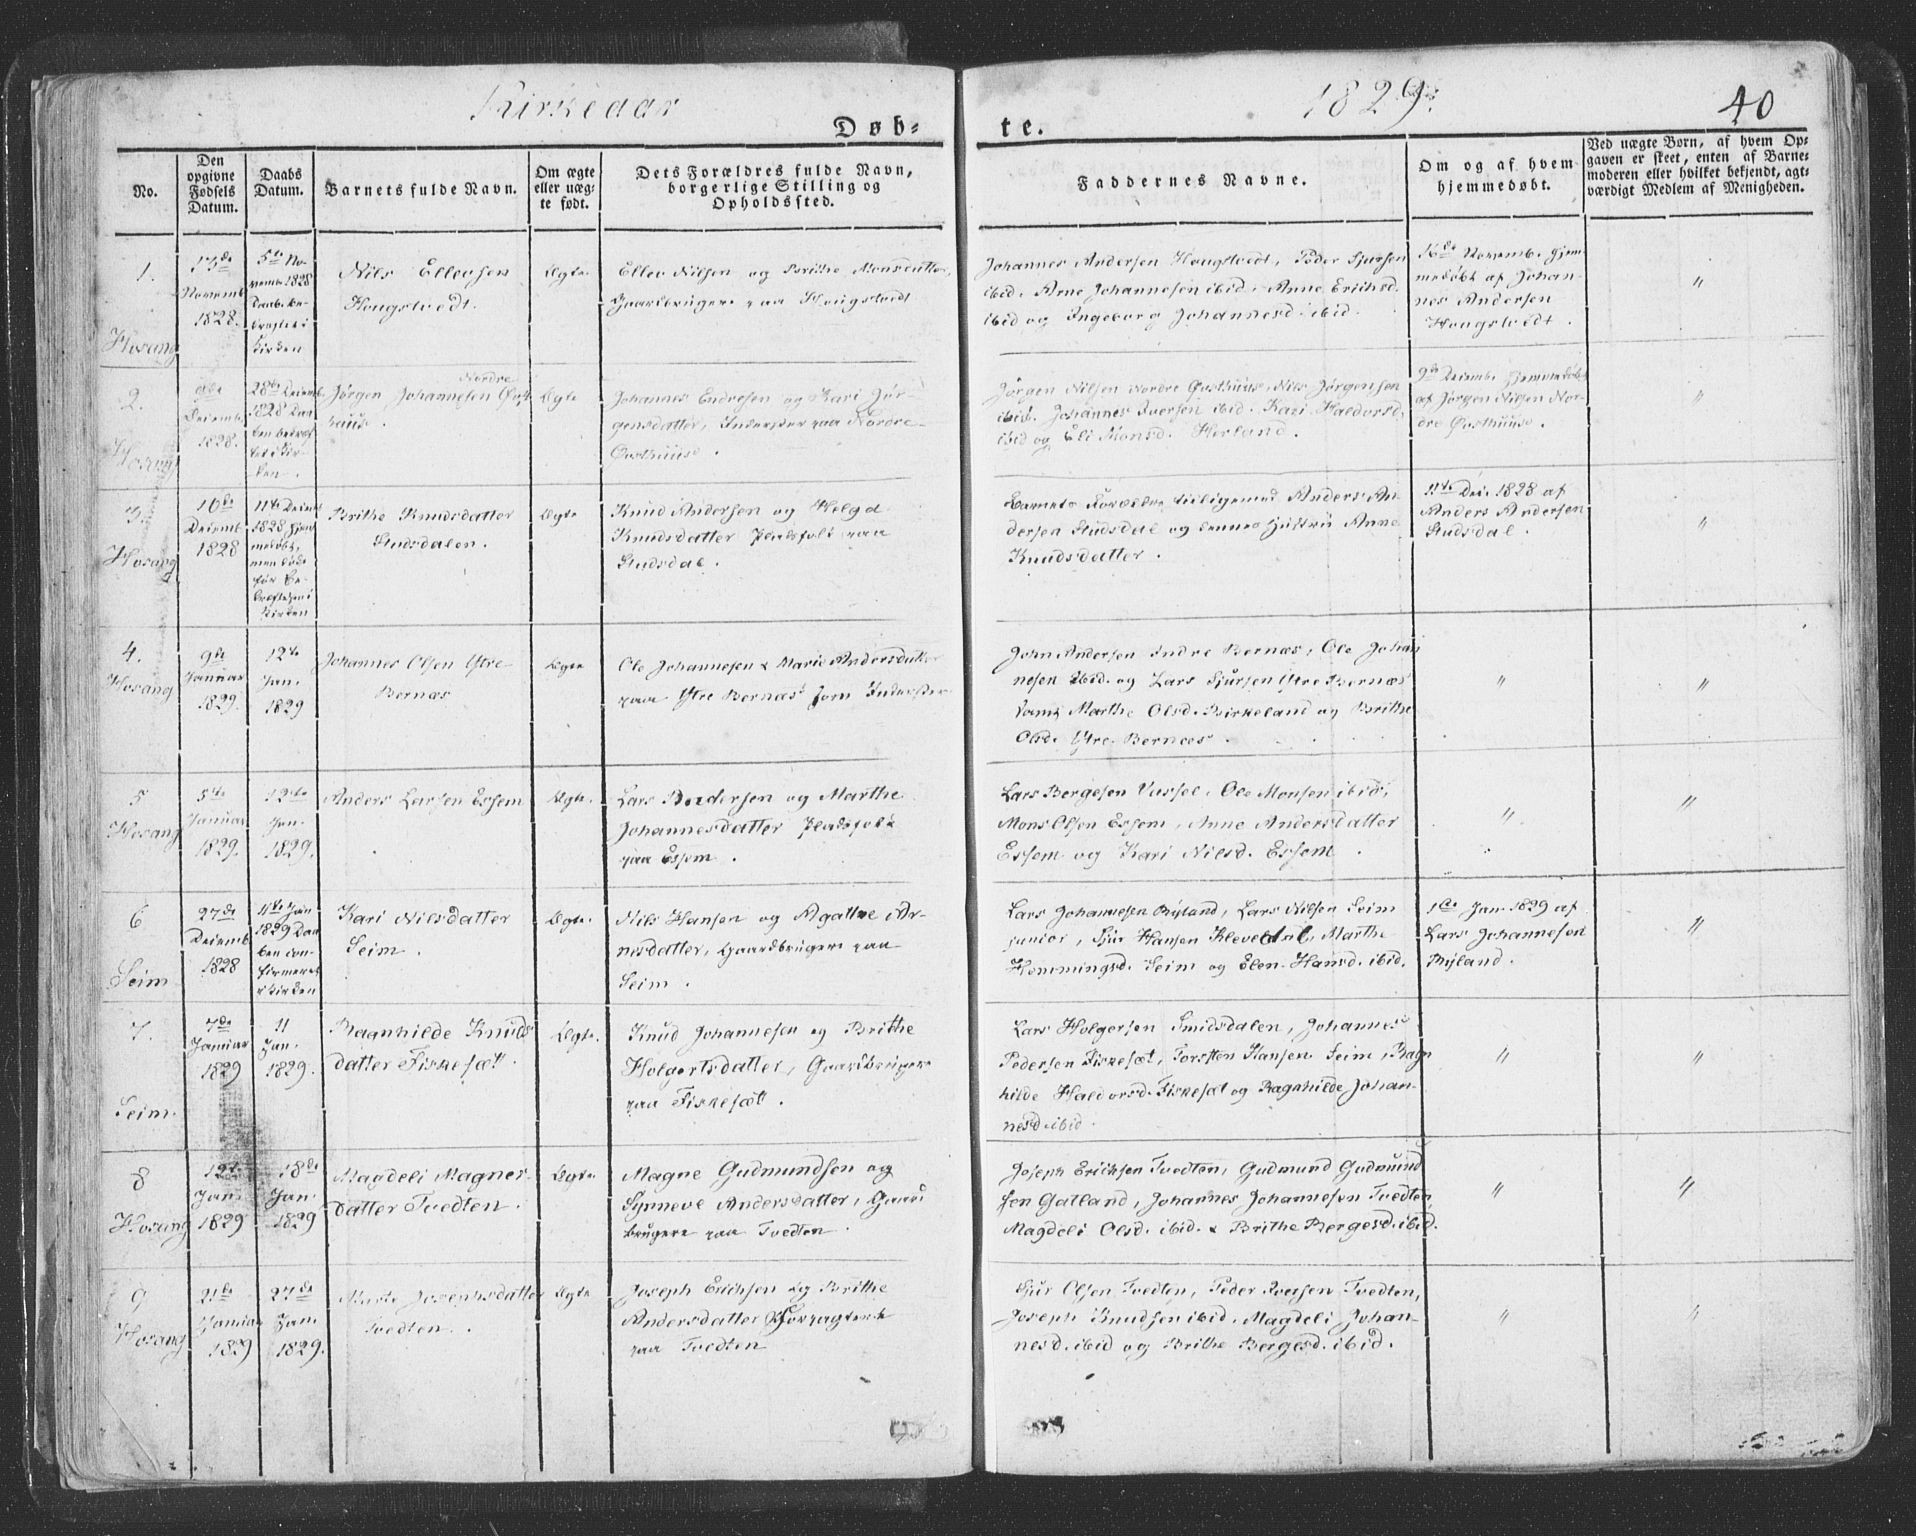 Kirkeaar
1829.
40
Døb-
te.
No.
Den
opgivne
Fødsels
Datum.
Daabs
Datum.
Barnets fulde Navn.
Om ægte
eller uæg-
te født.
Dets Forældres fulde Navn,
borgerlige Stilling og
Opholdssted.
Faddernes Navne.
Om og af hvem
hjemmedøbt.
Ved uægte Børn, af hvem Op-
gaven er skeet, enten af Barne-
moderen eller hvilket bekjendt, agt-
værdigt Medlem af Menigheden.
1.
Hosang
13de
Novemb
1828.
5te No-
vemb. 1828
Daab. be-
kirken
Nils Ellevsen
Hougstvedt.
Ægte
Ellev Nilsen og Brithe Monsdatter,
Gaardbrugere paa Hougstvedt
Johannes Andersen Hougstvedt, Peder Sjursen
ibid. Arne Johannesen ibid. Anne Erichsd.
ibid og Ingeborg Johannesd. ibid.
16de Novemb. hjem-
medøbt af Johan-
nes Andersen
Hougstvedt.
"
2.
Hosang
Decemb.
1828.
28de Decemb
1828 Daa-
ben bekræf-
tet i Kir-
ken.
Nordre
Jørgen Johannesen Øvst-
huus.
Ægte
Johannes Endresen og Kari Jør-
gensdatter, Inderster paa Nordre
Øvsthuus.
Jørgen Nilsen Nordre Øvsthuus, Nils Jørgensen
ibid. Johannes Iversen ibid. Kari Haldorsd.
ibid og Eli Monsd. Herland.
9de Decemb. hjemmedøbt
af Jørgen Nilsen Nor-
dre Øvsthuus.
"
3.
Hosang
10de
Decemb.
1828
11te Decemb
1828 hjem-
medøbt,
men døde
før Be-
kræftelsen i
Kirken
Brithe Knudsdatter
Studsdalen.
Ægte
Knud Andersen og Helga
Knudsdatter Pladsfolk paa
Studsdal.
Barnets Forældre tilligemed Anders An-
dersen Studsdal og dennes Hustru Anne
Knudsdatter.
11te Dec. 1828 af
Anders Andersen
Studsdal.
"
4.
Hosang
9de
Januar
1829.
12te
Jan.
1829
Johannes Olsen Ytre
Bernæs
Ægte
Ole Johannesen & Marie Andersdatter
paa Ytre Bernæs som Inderster
John Andersen Indre Bernæs, Ole Johan-
nesen ibid. og Lars Sjursen Ytre Bernæs
samt Marthe Olsd. Birkeland og Brithe
Olsd. Ytre Bernæs.
"
"
5
Hosang
5te
Januar
1829.
12te
Jan.
1829.
Anders Larsen Essem
Ægte.
Lars Pedersen og Marthe
Johannesdatter Pladsfolk
paa Essem.
Lars Bergesen Vassel, Ole Monsen ibid,
Mons Olsen Essem, Anne Andersdatter
Essem og Kari Nilsd. Essem.
"
"
6
Seim
27de
Decemb
1828
11te Jan
1829 Daa-
ben con-
firmeret
i Kirken
Kari Nilsdatter
Seim.
Ægte.
Nils Hansen og Agathe Ar-
nesdatter, Gaardbrugere paa
Seim.
Lars Johannesen Ryland, Lars Nilsen Seim
junior, Sjur Hansen Kleveldal, Marthe
Hemmingsd. Seim og Elen Hansd. ibid.
1ste Jan. 1829 af
Lars Johannesen
Ryland.
"
7.
Seim.
7de
Januar
1829
11
Jan.
1829.
Ragnhilde Knuds
datter Fiskesæt.
Ægte.
Knud Johannesen og Brithe
Holgertsdatter, Gaardbrugere
paa Fiskesæt.
Lars Holgersen Smidsdalen, Johannes
Pedersen Fiskesæt, Torsten Hansen Seim, Ragn
hilde Haldorsd. Fiskesæt og Ragnhilde Johan-
nesd. ibid.
"
"
8
Hosang
12te
Jan.
1829
18de
Jan.
1829
Magdeli Magnes-
datter Tvedten.
Ægte
Magne Gudmundsen og
Synneve Andersdatter, Gaard
brugere paa Tvedten.
Joseph Erichsen Tvedten, Gudmund Gudmund
sen Gatland, Johannes Johannesen Tvedten,
Magdeli Olsd. ibid. & Brithe Bergesd. ibid.
"
"
9
Hosang
21de
Januar
1829
27de
Jan.
1829.
Marte Josephsdatter
Tvedten.
Ægte
Joseph Erichsen og Brithe
Andersdatter Forpagtere
paa Tvedten
Sjur Olsen Tvedten, Peder Iversen Tvedten,
Joseph Knudsen ibid. Magdeli Johan-
nesd. ibid og Brithe Bergesd. ibid.
"
"